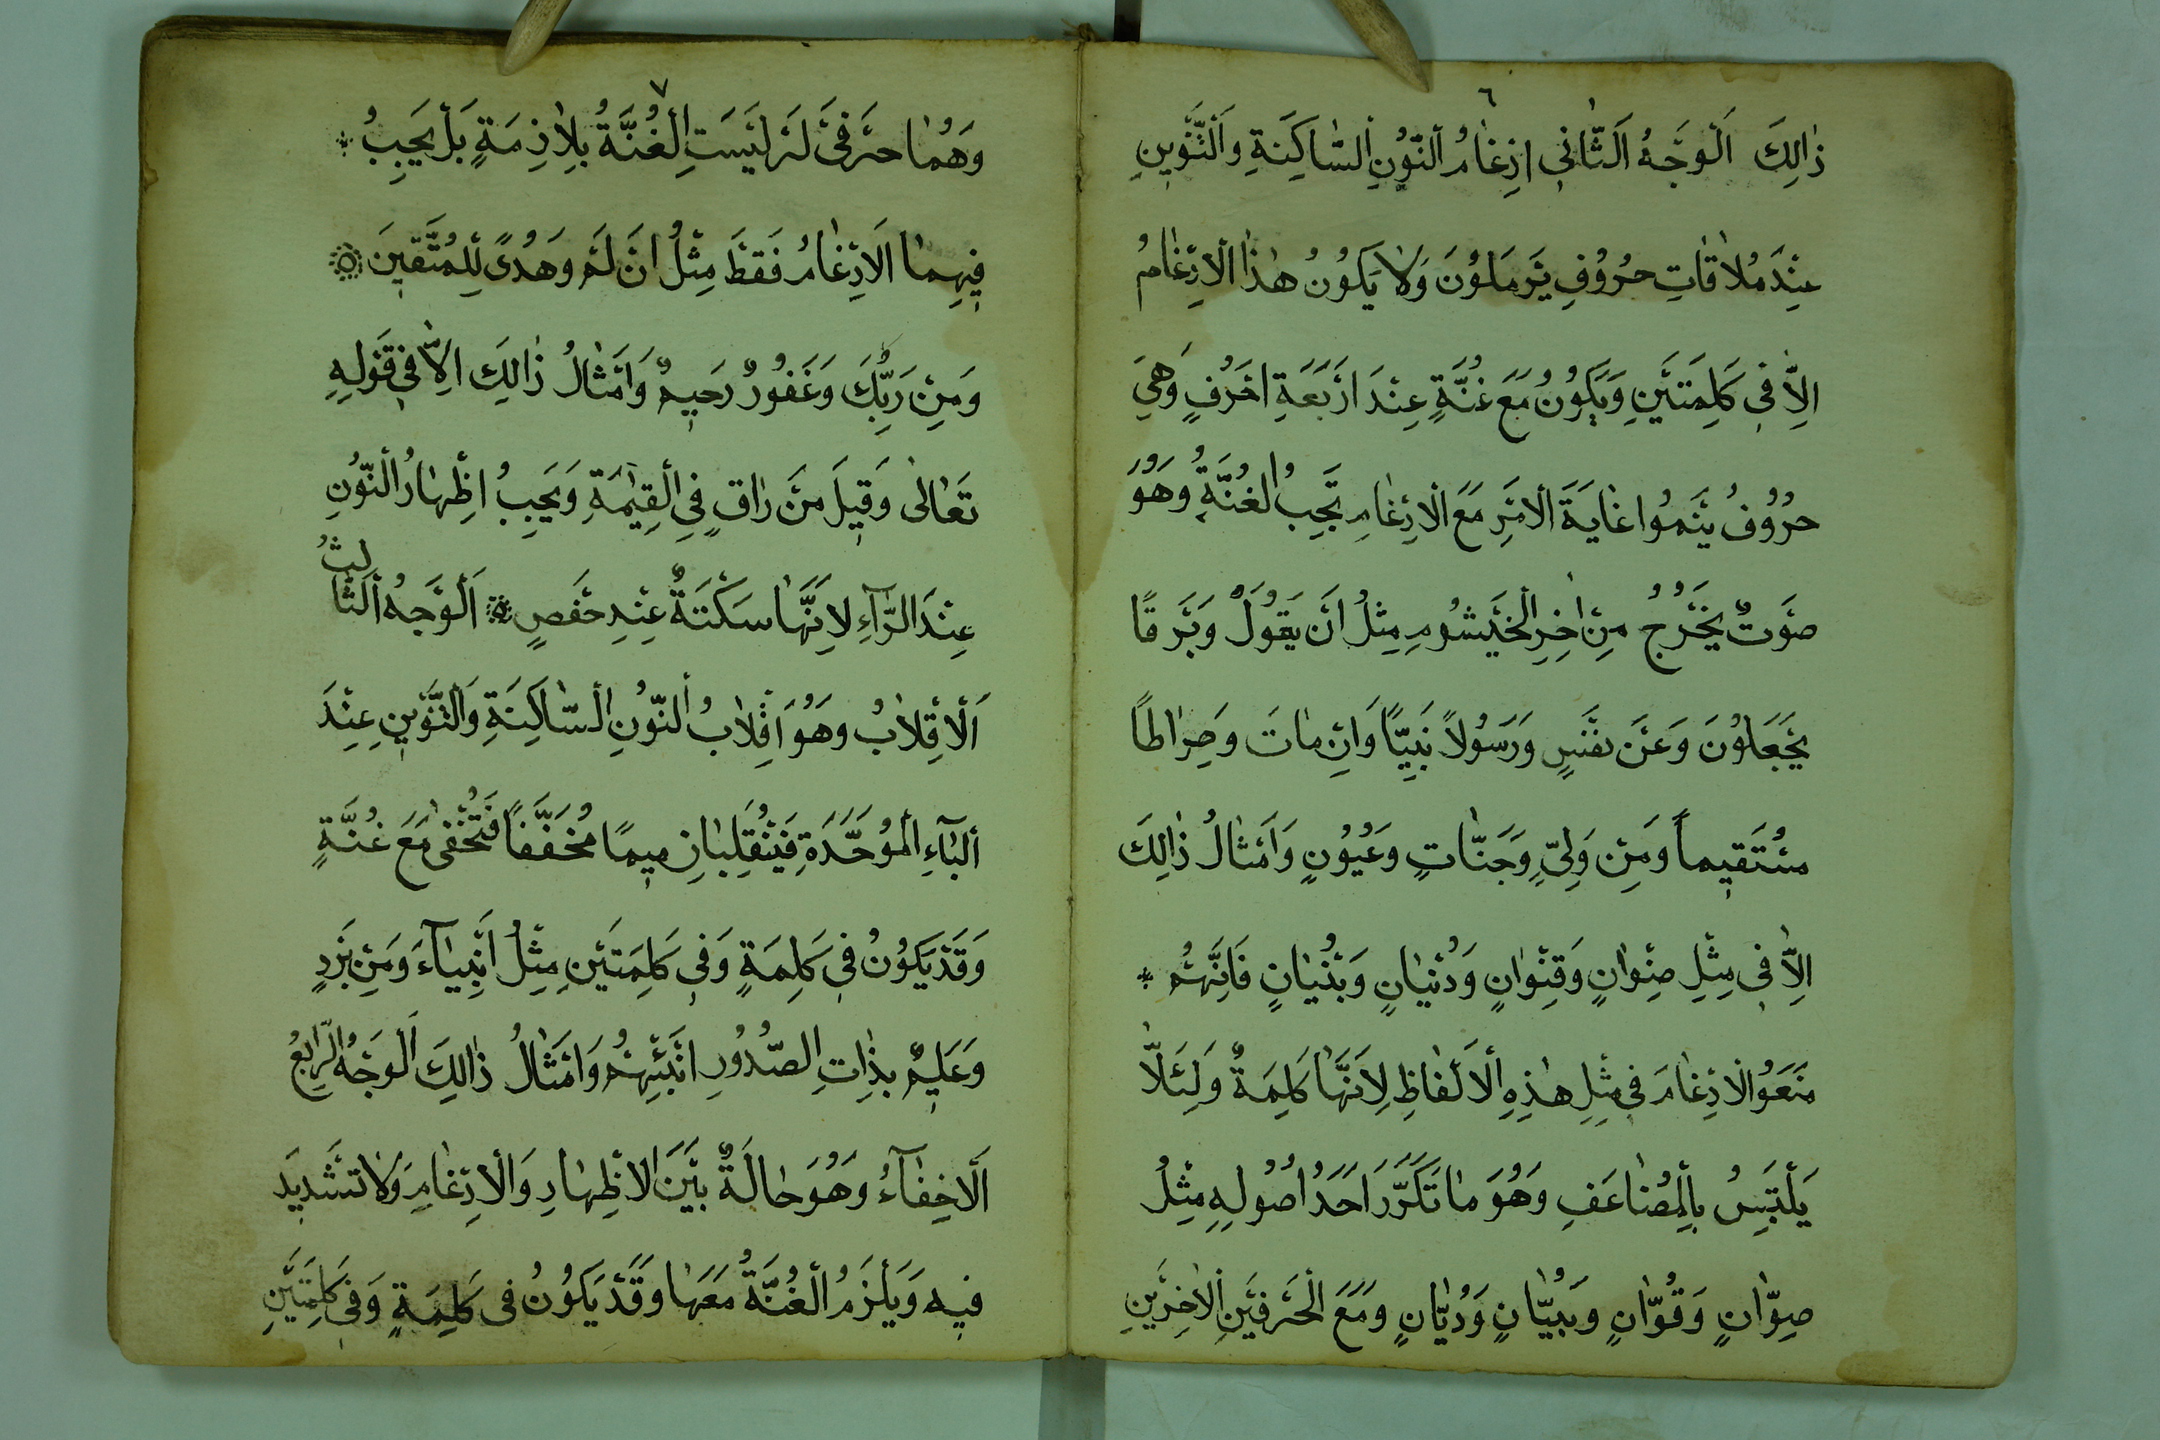 ٦
ذٰالِكَ اَلْوَجْهُ اَلثَّانٖي اِدْغٰامُ اَلنُّوْنِ السّٰاكِنَةِ وَالتَّنْوٖينِ
عِنْدَ مُلٰاقٰاتِ حُرُوْفِ يَرْمَلُوْنَ وَلٰا يَكُوْنُ هٰذَا الْاِدْغٰامُ
اِلّٰا فٖي كَلِمَتَيْنِ وَيَكُوْنُ مَعَ غُنَّةٍ عِنْدَ اَرْبَعَةِ اَحْرُفٍ وَهِيَ
حُرُوْفُ يَنْمُوا غٰايَةَ الْاَمْرِ مَعَ الْاِدْغٰامِ تَجِبُ الْغُنَّةُ وَهُوَ
صَوْتٌ يَخْرُجُ مِنْ اٰخِرِ الْخَيْشُومِ مِثْلُ اَنْ يَقُوْلَ وَبَرْقًا
يَجْعَلُوْنَ وَعَنْ نَفْسٍ وَرَسُوْلًا نَبِيًّا وَاِنْ مٰاتَ وَصِرٰاطًا
مُسْتَقٖيمًا وَمِنْ وَلِيٍّ وَجَنّٰاتٍ وَعُيُوْنٍ وَاَمْثٰالُ ذٰالِكَ
اِلّٰا فٖي مِثْلِ صِنْوٰانٍ وَقِنْوٰانٍ وَدُنْيٰانٍ وَبُنْيٰانٍ فَاِنَّهُمْ
مَنَعُوا الْاِدْغٰامَ فٖي مِثْلِ هٰذِهِ الْاَلْفٰاظِ لِاَنَّهٰا كَلِمَةٌ وَلِئَلّٰا
يَلْتَبِسُ بِالْمُضٰاعَفِ وَهُوَ مٰا تَكَرَّرَ اَحَدُ اُصُوْلِهٖ مِثْلُ
صِوّٰانٍ وَقُوّٰانٍ وَبُيّٰانٍ وَدُيّٰانٍ وَمَعَ الْحَرْفَيْنِ الْاٰخِرَيْنِ
٧
وَهُمٰا حَرْفَيْ لَرْ لَيْسَتِ الْغُنَّةُ بِلٰازِمَةٍ بَلْ يَجِبُ
فٖيهِمٰا الْاِدْغٰامُ فَقَطْ مِثْلُ اَنْ لَمْ وَهُدًى لِلْمُتَّقٖينَ
وَمِنْ رَبِّكَ وَغَفُوْرٌ رَحٖيمٌ وَاَمْثٰالُ ذٰالِكَ اِلّٰا فٖي قَوْلِهٖ
تَعٰالٰى وَقٖيلَ مَنْ رٰاقٍ فِي الْقِيٰمَةِ وَيَجِبُ اِظْهٰارُ النُّوْنِ
عِنْدَ الرّٰآءِ لِاَنَّهٰا سَكْتَةٌ عِنْدِ حَفْصٍ اَلْوَجْهُ اَلثَّالِثُ
اَلْاِقْلٰابُ وَهُوَ اِقْلٰابُ النُّوْنِ السّٰاكِنَةِ وَالتَّنْوٖينِ عِنْدَ
اَلْبٰآءِ الْمُوَحَّدَةِ فَيَنْقَلِبٰانِ مٖيمًا مُخَفَّفًا فَتُخْفٰى مَعَ غُنَّةٍ
وَقَدْ يَكُوْنُ فٖي كَلِمَةٍ وَفٖي كَلِمَتَيْنِ مِثْلُ اَنْبِيٰآءَ وَمِنْ بَرَدٍ
وَعَلٖيمٌ بِذٰاتِ الصُّدُوْرِ اَنْبِئْهُمْ وَاَمْثٰالُ ذٰالِكَ اَلْوَجْهُ الرّٰابِعُ
اَلْاِخْفٰآءُ وَهُوَ حٰالَةٌ بَيْنَ الْاِظْهٰارِ وَالْاِدْغٰامِ وَلٰا تَشْدٖيدَ
فٖيهِ وَيَلْزَمُ الْغُنَّةُ مَعَهٰا وَقَدْ يَكُوْنُ فٖي كَلِمَةٍ وَفٖي كَلِمَتَيْنِ